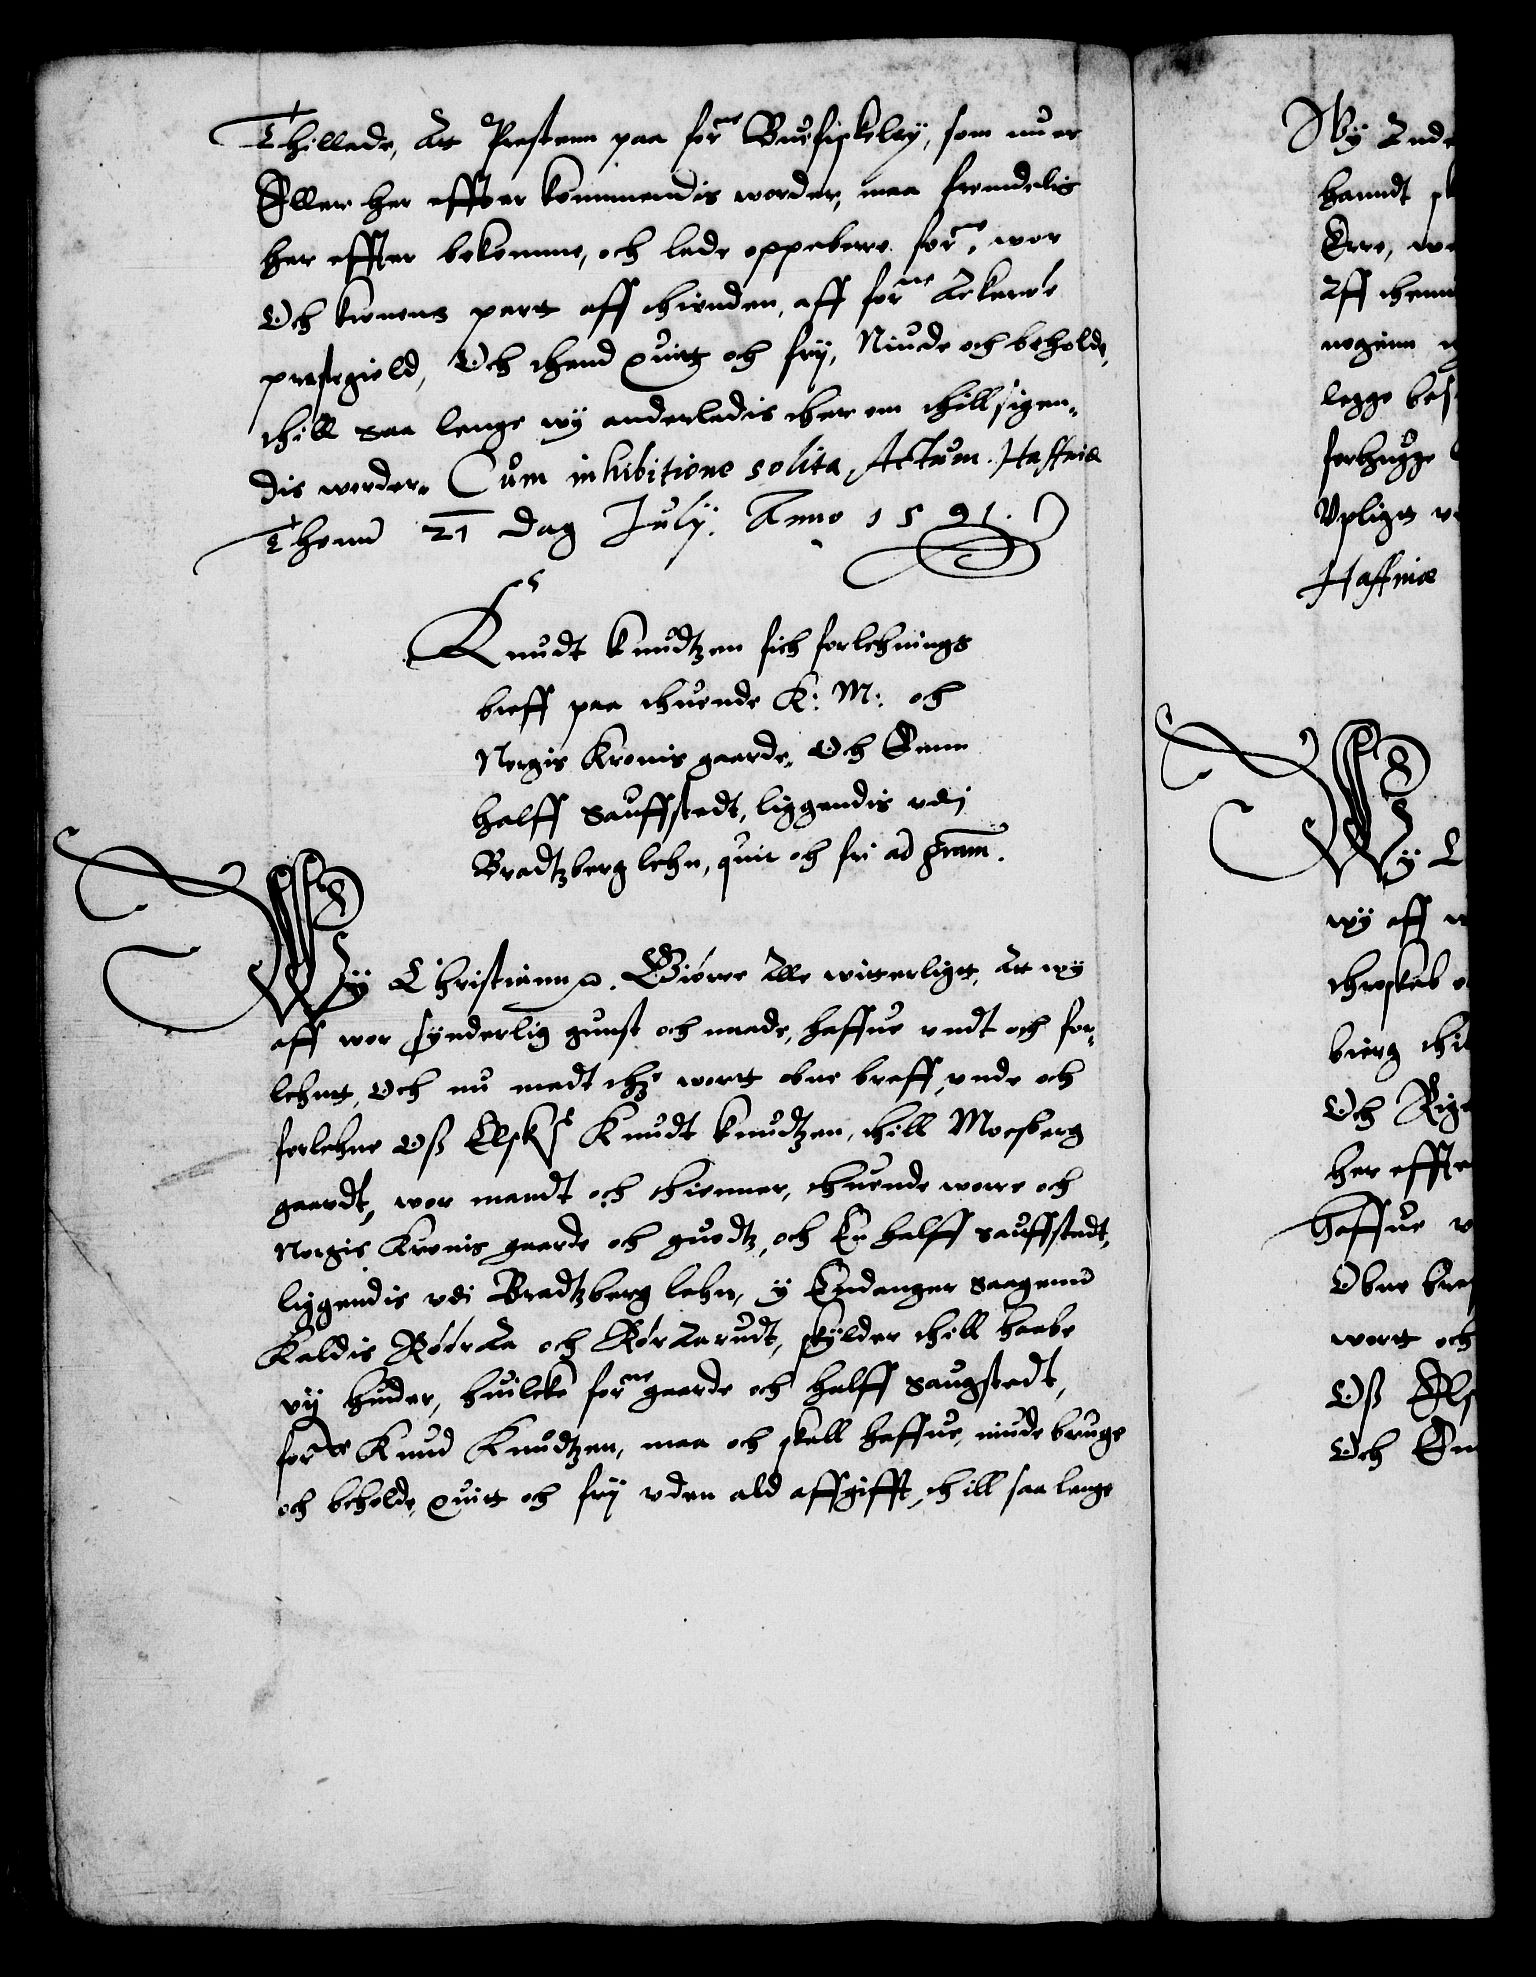 Thillade, Att Presten paa forne Buefiskeløy, som nu er
Eller her effter kommendis worder, maa fremdelis
her effter bekomme, och lade oppeberre forne, wor
Och kronens part aff thienden, aff forne Akerøe
prestegield, Och thend quitt och frij, Niude och beholde,
thill saa lenge wij anderledis ther om thillsigen¬
dis worder. Cum inhibitione solita, Actum. Haffniæ
Thend 21 dag Julij. Anno 1591.
Knudt Knudtzen fich forlehnings
breff paa thuende K: M: och
Norgis Kronis gaarde, Och Een
halff Sauffstedt, liggendis vdi
Bradtzberg lehn, quit och fri ad gram.
Wij Christiann. Giøre Alle witterligt, Att wij
aff wor synderlig gunst och naade, haffue vndt och for¬
lehnt, Och nu medt thz wort obne breff, vnde och
forlehne Oß Elsk: Knudt Knudtzen, thill Moesberg
gaardt, wor mandt och thienner, thuende wore och
Norgis Kronis gaarde och guodtz, och En halff Sauffstedt,
liggendis vdi Bradtzberg lehn, y Endanger Saagenn
Kaldis Røøraa och Røraarudt, skylder thill haabe
vij huder, huilcke forne gaarde och halff Saugstedt,
forne Knud Knudtzen, maa och skall haffue, niude bruge
och beholde, quitt och frij vden ald affgifft, thill saa lenge
Wij Ande
handt
Erre,
Aff them
nogenn
legge
forhugge
Vpligt
Haffniæ
Wij
wij aff
bierg
Och Rige
her effte
haffue
Obne bref
wortt och
Oß Els
Och En